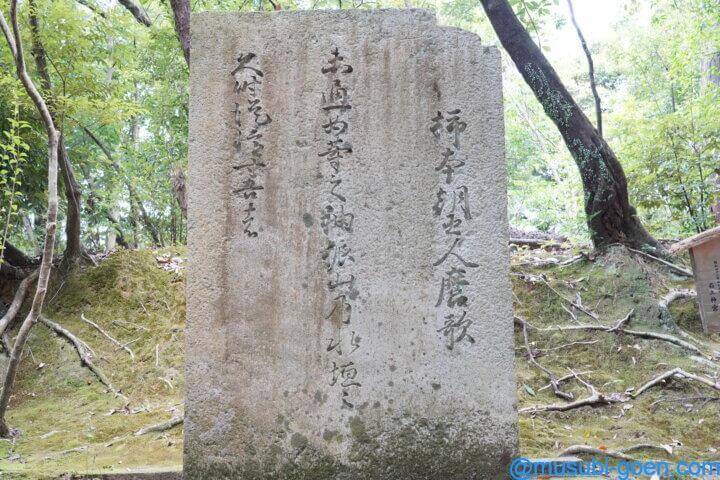 柿本朝臣人麿歌
未通女等之袖振山乃水垣之
久時従憶寸吾者
@musubi-goen.com